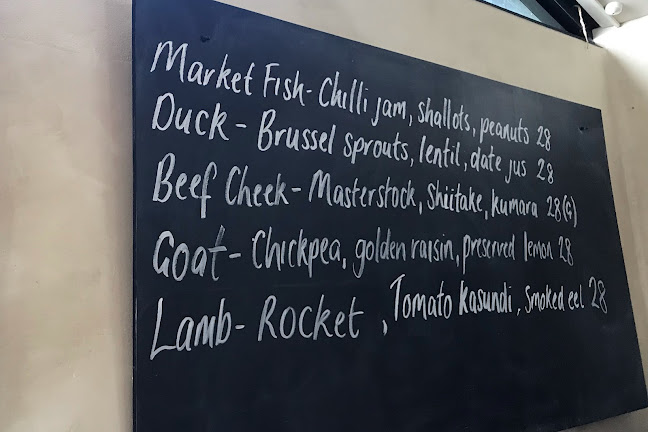 Market Fish- Chilli jam, shallots, peanuts 28
Duck - Brussel sprouts, lentil, date jus 28
Beef Cheek - Masterstock, Shiitake, kumara 28(G)
Goat - Chickpea, golden raisin, preserved lemon 28
Lamb- Rocket, Tomato kasundi, Smoked eel 28